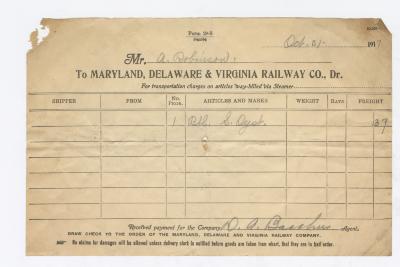 Form 28-S
Oct. 31 1917
Mr. A. Robinson.
To MARYLAND, DELAWARE & VIRGINIA RAILWAY CO., Dr.
For transportation charges on articles way-billed via Steamer
SHIPPER FROM No. PKGS. ARTICLES AND MARKS WEIGHT RATE FREIGHT
1 Bbl. S. Oyst. 39
Received payment for the Company, D. A. Agent.
DRAW CHECK TO THE ORDER OF THE MARYLAND, DELAWARE AND VIRGINIA RAILWAY COMPANY.
No claims for damages will be allowed unless delivery clerk is notified before goods are taken from wharf, that they are in bad order.